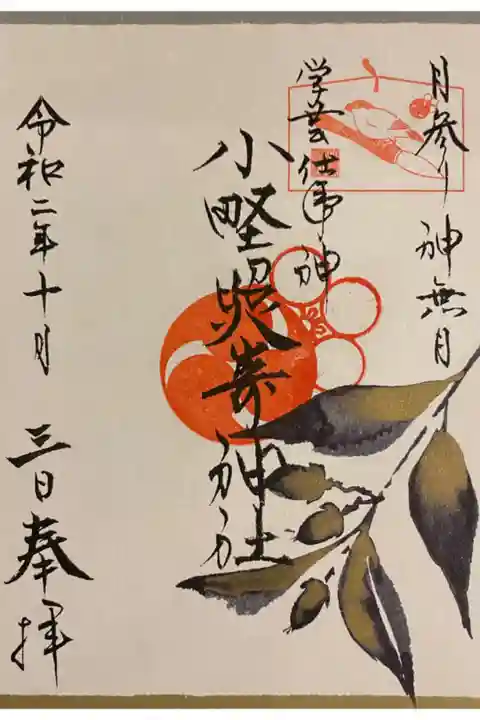 月参り 神無月
学芸仕事神
小野照崎神社
令和二年十月 三日
奉拝